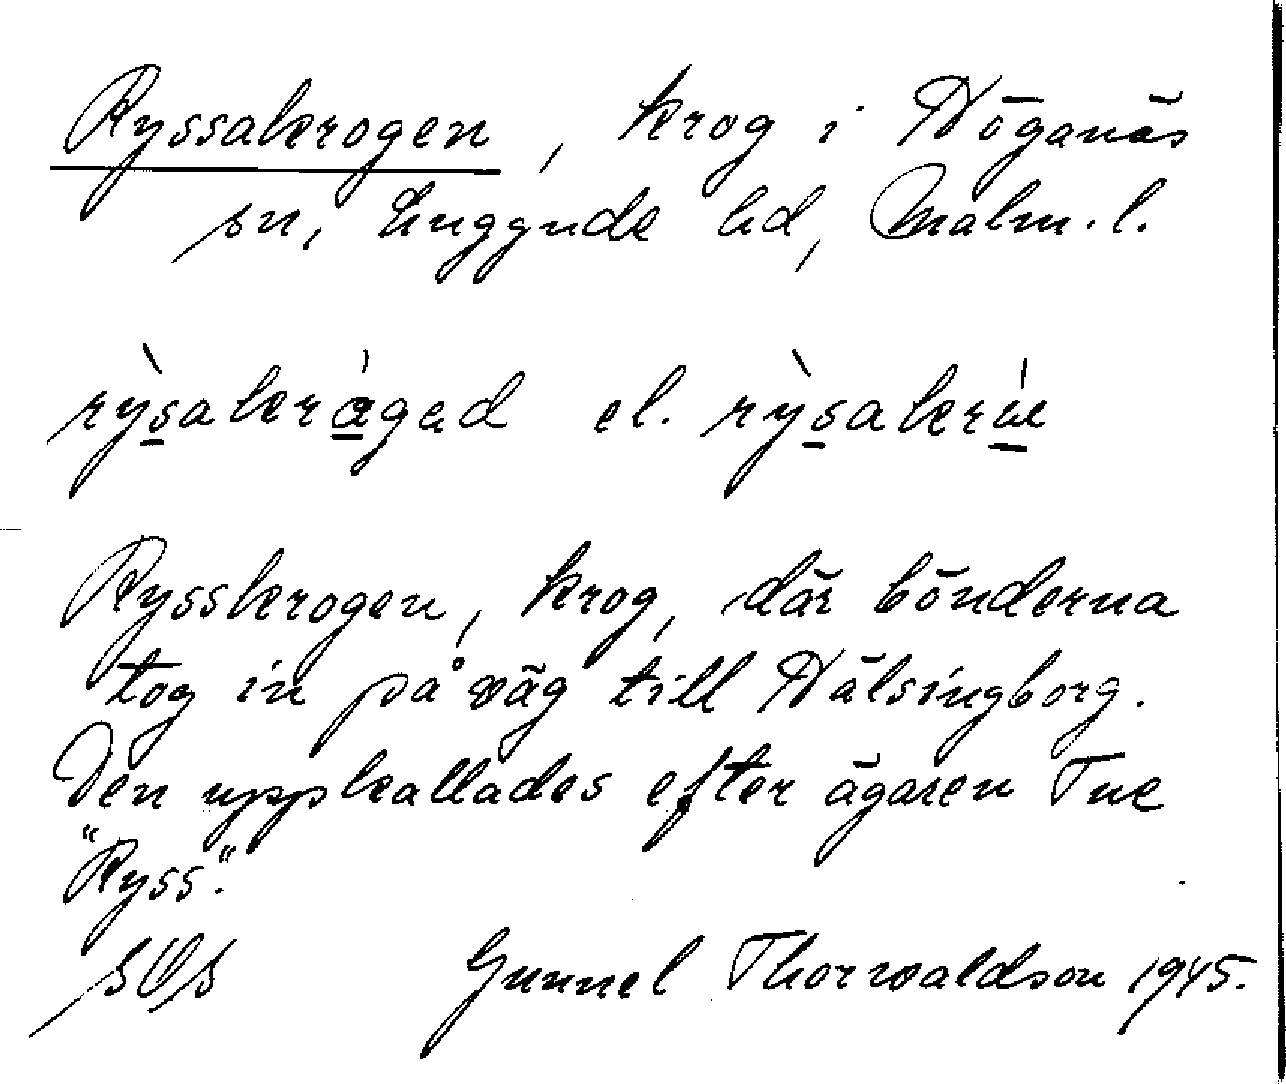 Ryssakrogen, krog i Höganäs
sn, Luggude hd, Malm. l.
rỳsakrågəd el. rỳsakrú
Rysskrogen, krog, där bönderna
tog in på väg till Hälsingborg.
Den uppkallades efter ägaren Tue
"Ryss".
Gunnel Thorwaldson 1945.